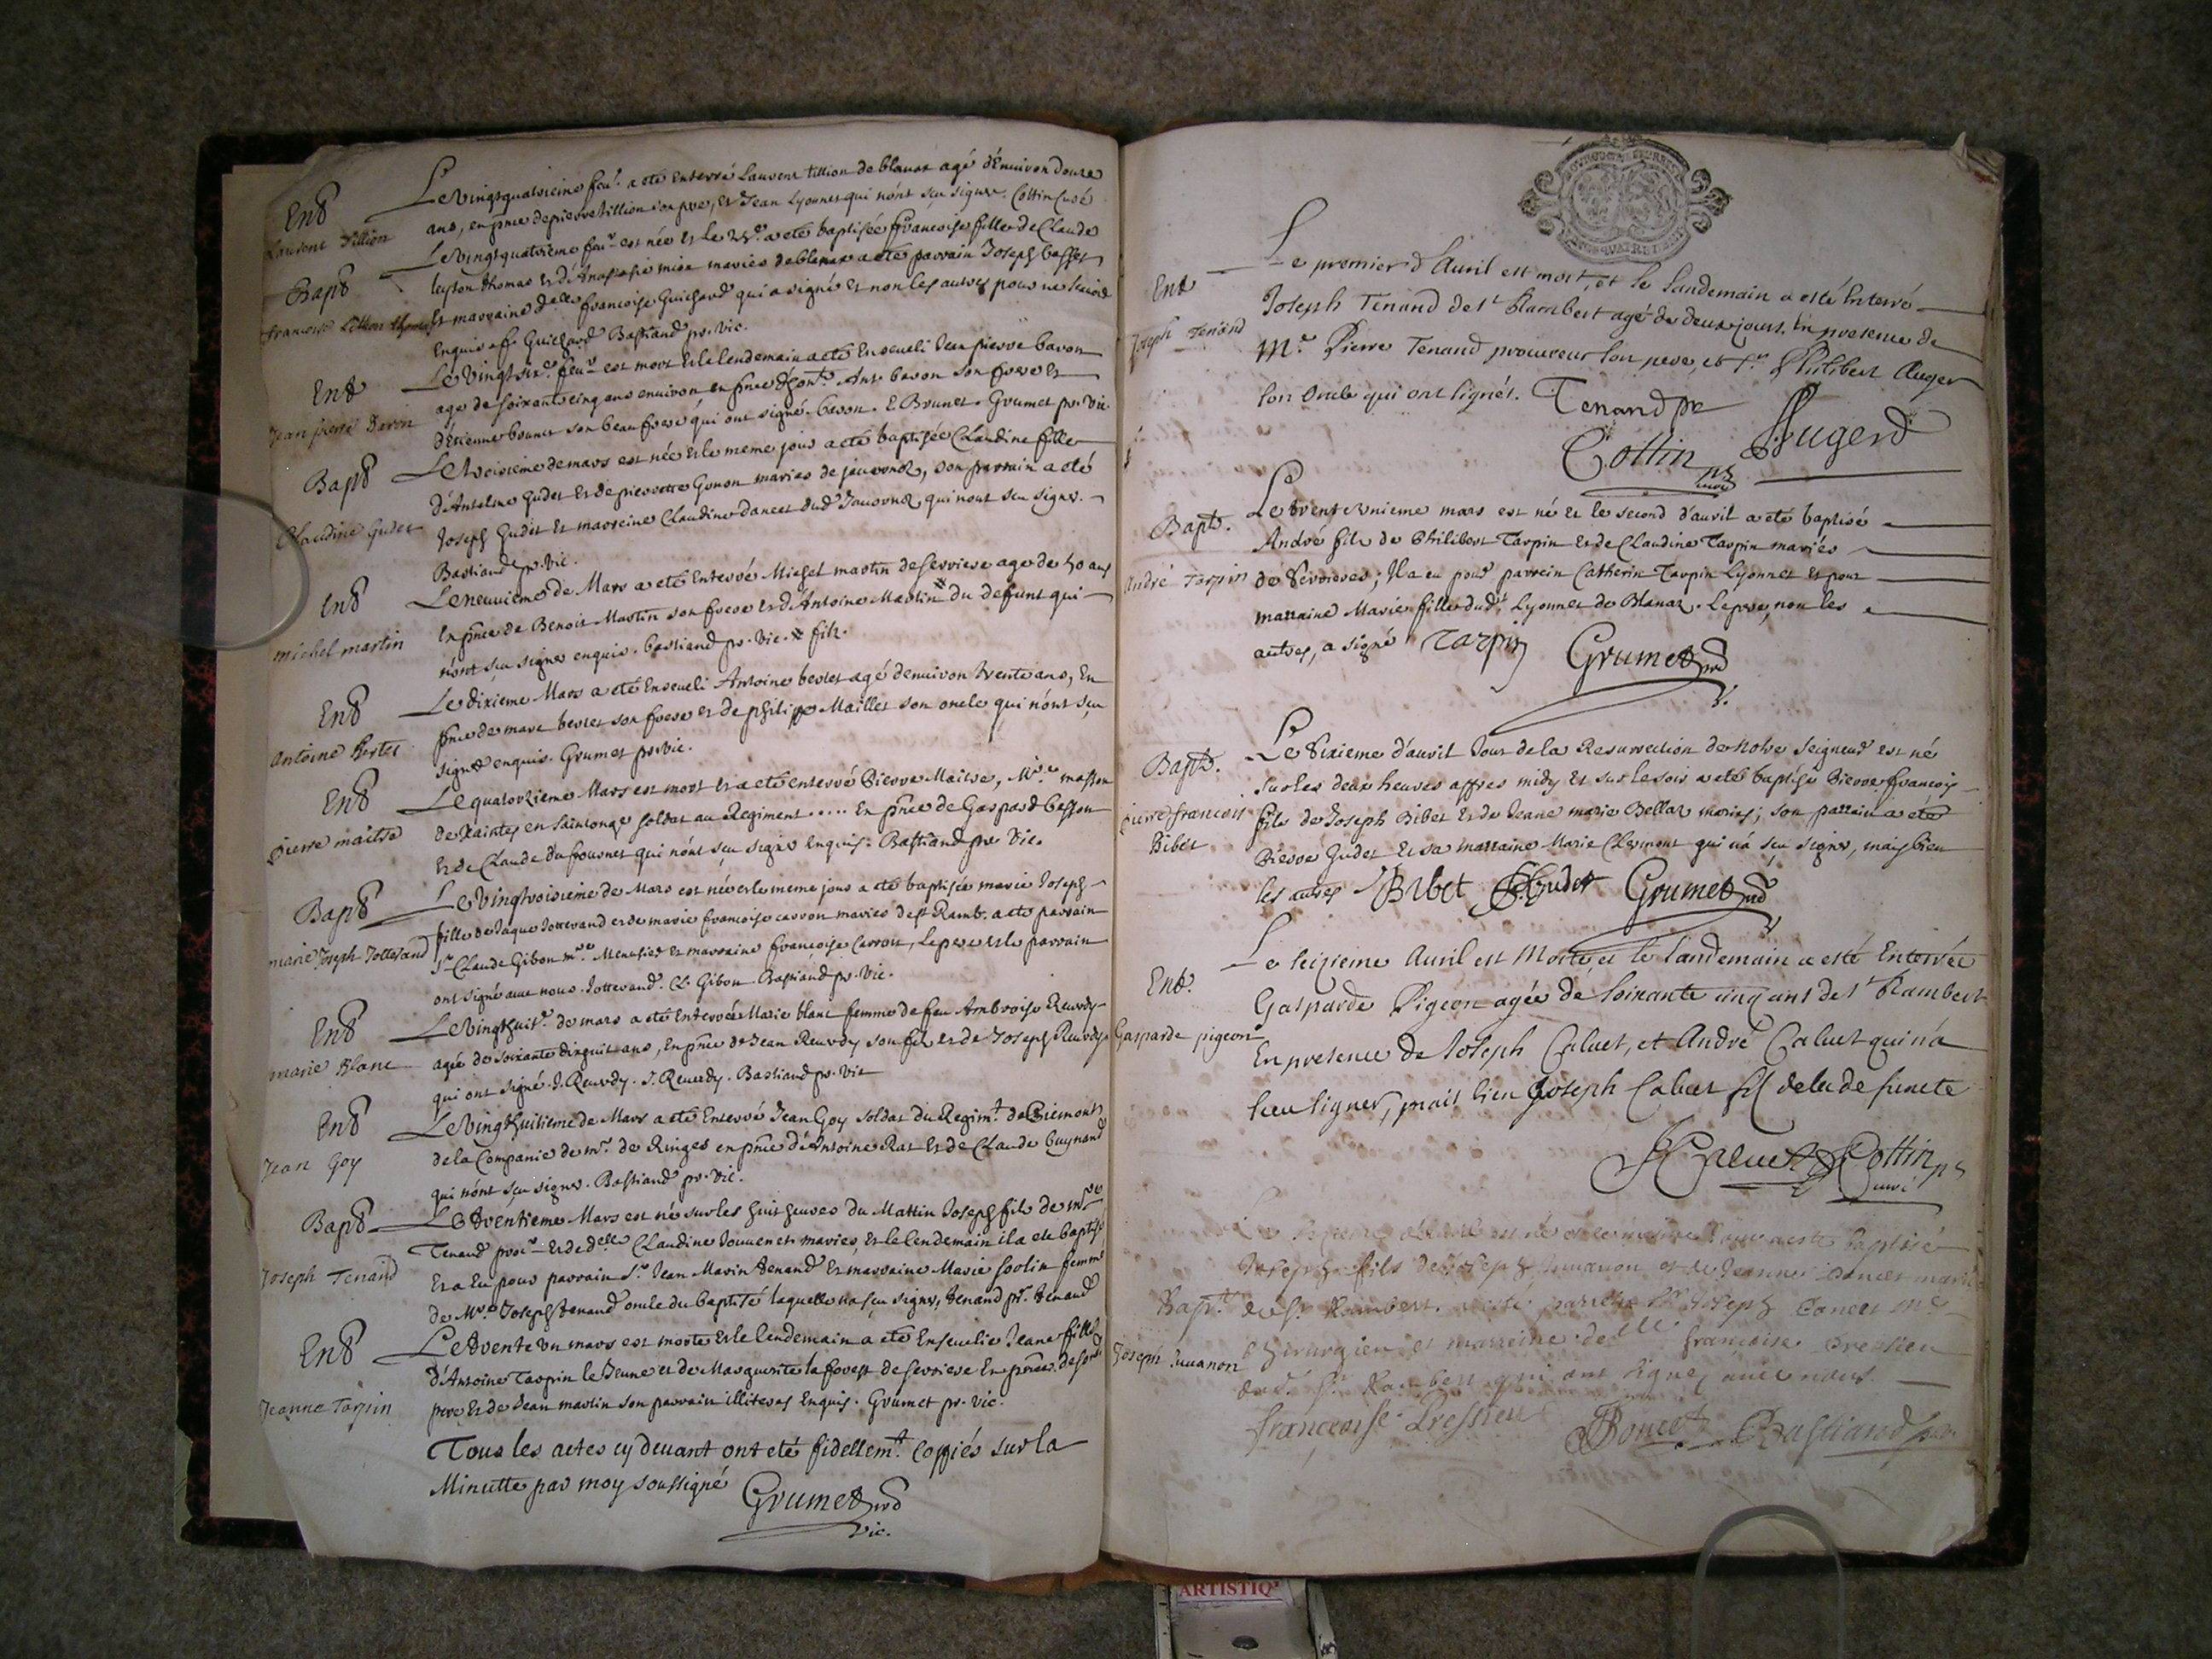 Entt
Laurent Tillion
Le vingtquatrieine feur. a eté Enterré Laurent tillion de blanaz agé d'Environ douze
ans, en pnce de pierre tillion son pere, et Jean Lyonnet qui n'ont sçu signer. Cottin Curé
Bapt
francoise
Le vingtquatrieme feur est née et le 25e a eté baptisée francoise fille de Claude
Thomas et d'Anastasie mariés de blanaz a eté parrain Joseph
et marraine delle francoise Guichard qui a signé et non les autres pour ne scavoir
Enquis. f. Guichard Bastiand pr. vic.
Ent
Jean pierre
Le vingt sixe feur est mort et le lendemain a eté Enseveli Jean pierre
age de soixante cinq ans environ en pnce Ant. son frere et
d'Etienne brunet son beau frere qui ont signé. E. Brunet. Grumet pr. vic.
Bapt
Claudine Gudet
Le troisieme de mars est née et le meme jour a eté baptisée Claudine fille
d'Antelme Gudet et de pierrette Gonon mariés de javornoz, son parrain a eté
Joseph Gudet et marreine Claudine dancet dud Javornoz qui n'ont sçu signer.
Bastiand pr. vic.
Ent
michel martin
Le neuvieme de Mars a eté Enterré Michel martin de serriere age de 50 ans
En pnce de Benoit Martin son frere et d'Antoine Martin # du defunt qui
n'ont sçu signer enquis. bastiand pr. vic. # fils.
Ent
antoine Bertet
Le dixieme Mars a eté Enseveli Antoine bertet agé d'environ trente ans, En
pnce de marc bertet son frere et de philippe Maillet son oncle qui n'ont sçu
signer enquis. Grumet pr. vic.
Ent
pierre maitre
Le quatorzieme Mars est mort et a eté enterré Pierre Maitre, Mre masson
de xaintes en saintonge soldat au Regiment ..... En pnce de Gaspard besson
et de Claude du fournet qui n'ont sçu signer Enquis. Bastiand pr. vic.
Bapt
marie Joseph Jotterand
Le vingttroisieme de Mars est née et le meme jour a eté baptisée marie Joseph
fille de Jaque Jotterand et de marie francoise carron mariés de st Ramb. a eté parrain
Sr Claude Gibon me. Menusier et marraine francoise Carron, le pere et le parrain
ont signé avec nous. Jotterand. Cl. Gibon. Bastiand pr. vic.
Ent
marie Blanc
Le vingthuite de mars a eté Enterrée Marie blanc femme de feu Ambroise Reverdy
agée de soixante dixhuit ans, En pnce de Jean Reverdy son fils et de Joseph Reverdy
qui ont signé. J. Reverdy. J. Reverdy. Bastiand pr. vic
Ent
Jean Goy
Le vingthuitieme de Mars a eté Enterré Jean Goy soldat du Regimt de Piemont
de la Companie de mr. de Ringes en pnce d'Antoine Rat et de Claude Guynand
qui n'ont sçu signer. Bastiand pr. vic.
Bapt
Joseph Tenand
Le trentieme Mars est né sur les huit heures du Mattin Joseph fils de
Tenand procr. et de delle Claudine Jouvenet mariés, et le lendemain il a eté baptisé
Et a Eu pour parrain Sr. Jean Marin Tenand et marraine Marie femme
de Mre Joseph Tenand oncle du baptisé laquelle n'a sçu signer, Tenand pr. Tenand
Ent
Jeanne Tarpin
Le trente un mars est morte et le lendemain a eté Ensevelie Jeane fille
d'Antoine Tarpin le Jeune et de Marguerite la forest de serriere En pnce de son
pere et de Jean martin son parrain illiteres Enquis. Grumet pr. vic.
Tous les actes cy devant ont eté fidellemt. coppiés sur la
Minutte par moy soussigné Grumet
vic.
Ent
Joseph Tenand
Le premier d'Auril est mort, et le landemain a esté Enterré
Joseph Tenand de st Rambert agé de deux jours. En presence de
Mre. Pierre Tenand procureur son pere, et Sr. Philibert Auger
son oncle qui ont signés. Tenand pr
Cottin Augerd
curé
Bapt.
André Tarpin
Le trenteunieme mars est né et le second d'avril a eté baptisé
André fils de Philibert Tarpin et de Claudine Tarpin mariés
de Serrieres; Il a eu pour parrein Catherin Tarpin Lyonnet et pour
marraine Marie fille dudt. Lyonnet de Blanaz. Le pere, non les
autres, a signé Tarpin Grumet
Bapt.
pierre francois
Bibet
Le Sixieme d'avril Jour de la Resurrection de notre seigneur est né
sur les deux heures appres midy et sur le soir a eté baptisé Pierre francois
fils de Joseph Bibet et de Jeane marie Bellaz mariés; son parrain a eté
Pierre Gudet et sa marraine Marie Clermont qui n'a sçu signer, mais bien
les autres J Bibet P. Gudet Grumet
Ent.
Gasparde pigeon
Le seizieme Auril est Morte, et le landemain a esté Enterrée
Gasparde Pigeon agée de soixante cinq ans de st Rambert
En presence de Joseph Caluet, et André Caluet qui n'a
sceu signer, mais bien Joseph Caluet fils de la defuncte
J Caluet Cottin
curé
Bapt.
Joseph Juuanon
est né et le mesme jour a esté baptisé
Joseph fils de Joseph Juuanon et de Jeanne mariés
de St. Rambert. a esté parrein Sr Joseph me
chirurgien et marreine delle francoise Dressieu
dud. St. Rambert qui ont signés auec nous.
francoise Dressieu Bastiand
ARTISTIQ